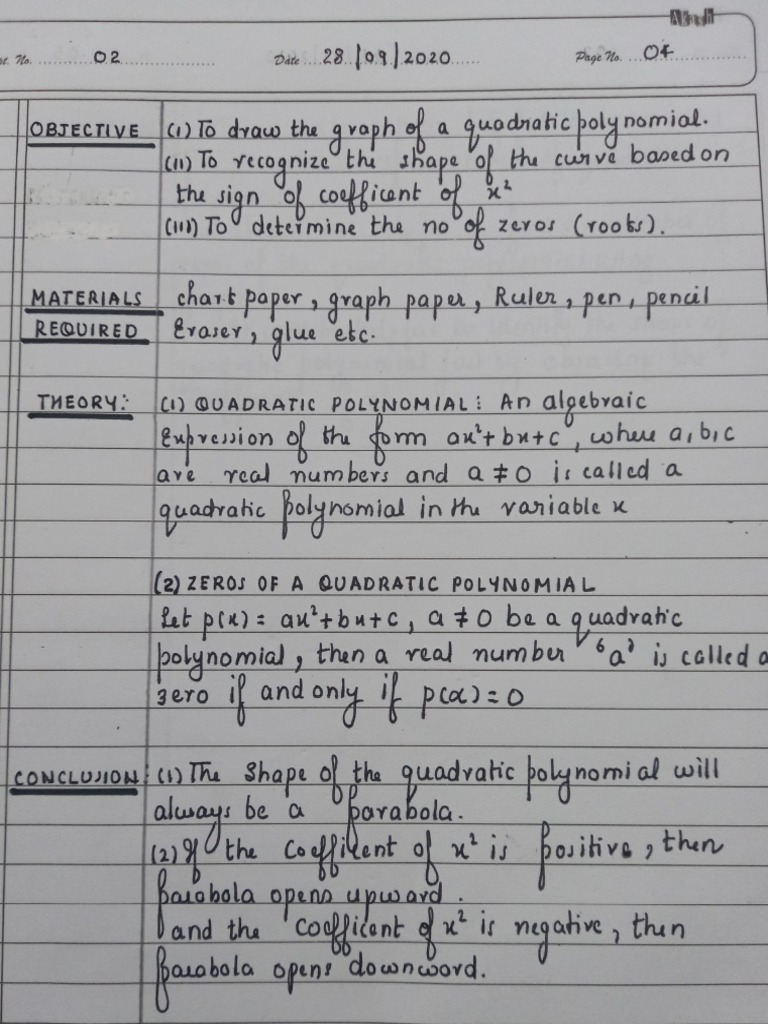 No. 02 Date 28/09/2020 Page No. 04
OBJECTIVE (i) To draw the graph of a quadratic polynomial.
(ii) To recognize the shape of the curve based on
the sign of coefficent of x²
(iii) To determine the no of zeros (roots).
MATERIALS chart paper, graph paper, Ruler, pen, pencil
REQUIRED Eraser, glue etc.
THEORY: (1) QUADRATIC POLYNOMIAL: An algebraic
Expression of the form ax²+bx+c, where a, b, c
are real numbers and a ≠ 0 is called a
quadratic polynomial in the variable x
(2) ZEROS OF A QUADRATIC POLYNOMIAL
Let p(x) = ax²+bx+c, a ≠ 0 be a quadratic
polynomial, then a real number 'a' is called a
zero if and only if p(α) = 0
CONCLUSION: (1) The Shape of the quadratic polynomial will
always be a parabola.
(2) If the Coefficent of x² is positive, then
parabola opens upward.
and the Coefficent of x² is negative, then
parabola opens downword.